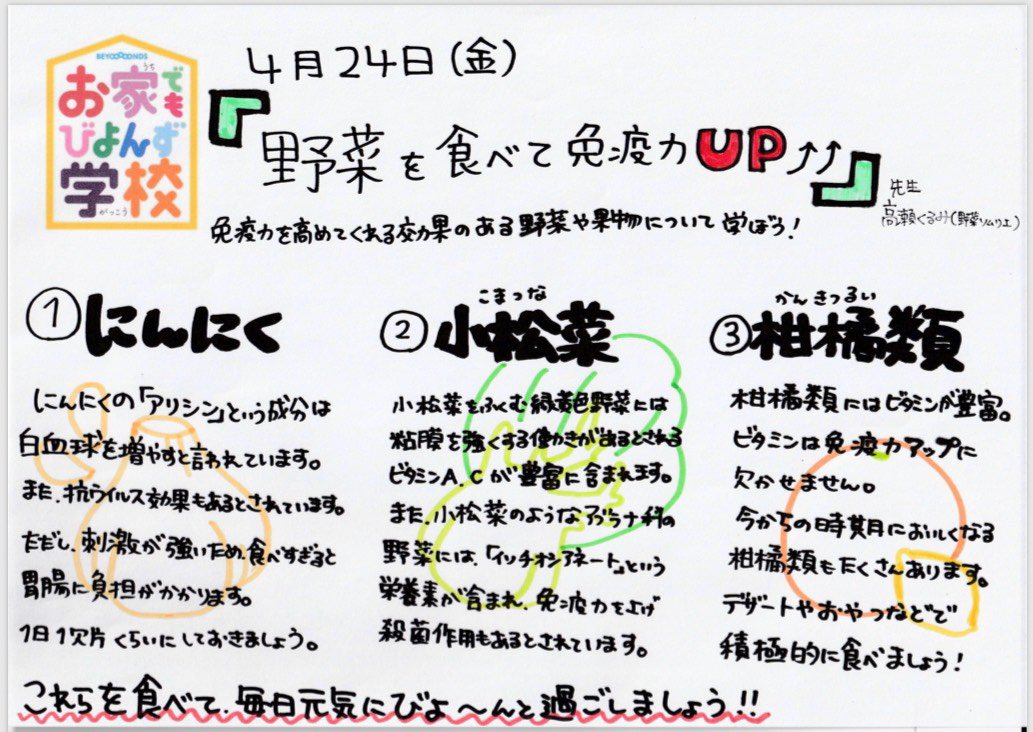 BEYOOOOONDS
お家でも
うち
びよんず
学校
がっこう
4月24日(金)
『野菜を食べて免疫力UP↑↑』
先生
高瀬くるみ(野菜ソムリエ)
免疫力を高めてくれる効果のある野菜や果物について学ぼう!
①にんにく
にんにくの「アリシン」という成分は
白血球を増やすと言われています。
また、抗ウイルス効果もあるとされています。
ただし、刺激が強いため、食べすぎると
胃腸に負担がかかります。
1日1欠片くらいにしておきましょう。
こまつな
②小松菜
小松菜をふくむ緑黄色野菜には
粘膜を強くする働きがあるとされる
ビタミンA、Cが豊富に含まれます。
また、小松菜のようなアブラナ科の
野菜には、「イッチオシアネート」という
栄養素が含まれ、免疫力を上げ
殺菌作用もあるとされています。
かんきつるい
③柑橘類
柑橘類にはビタミンが豊富。
ビタミンは免疫力アップに
欠かせません。
今からの時期においしくなる
柑橘類もたくさんあります。
デザートやおやつなどで
積極的に食べましょう!
これらを食べて、毎日元気にびよ〜んと過ごしましょう!!